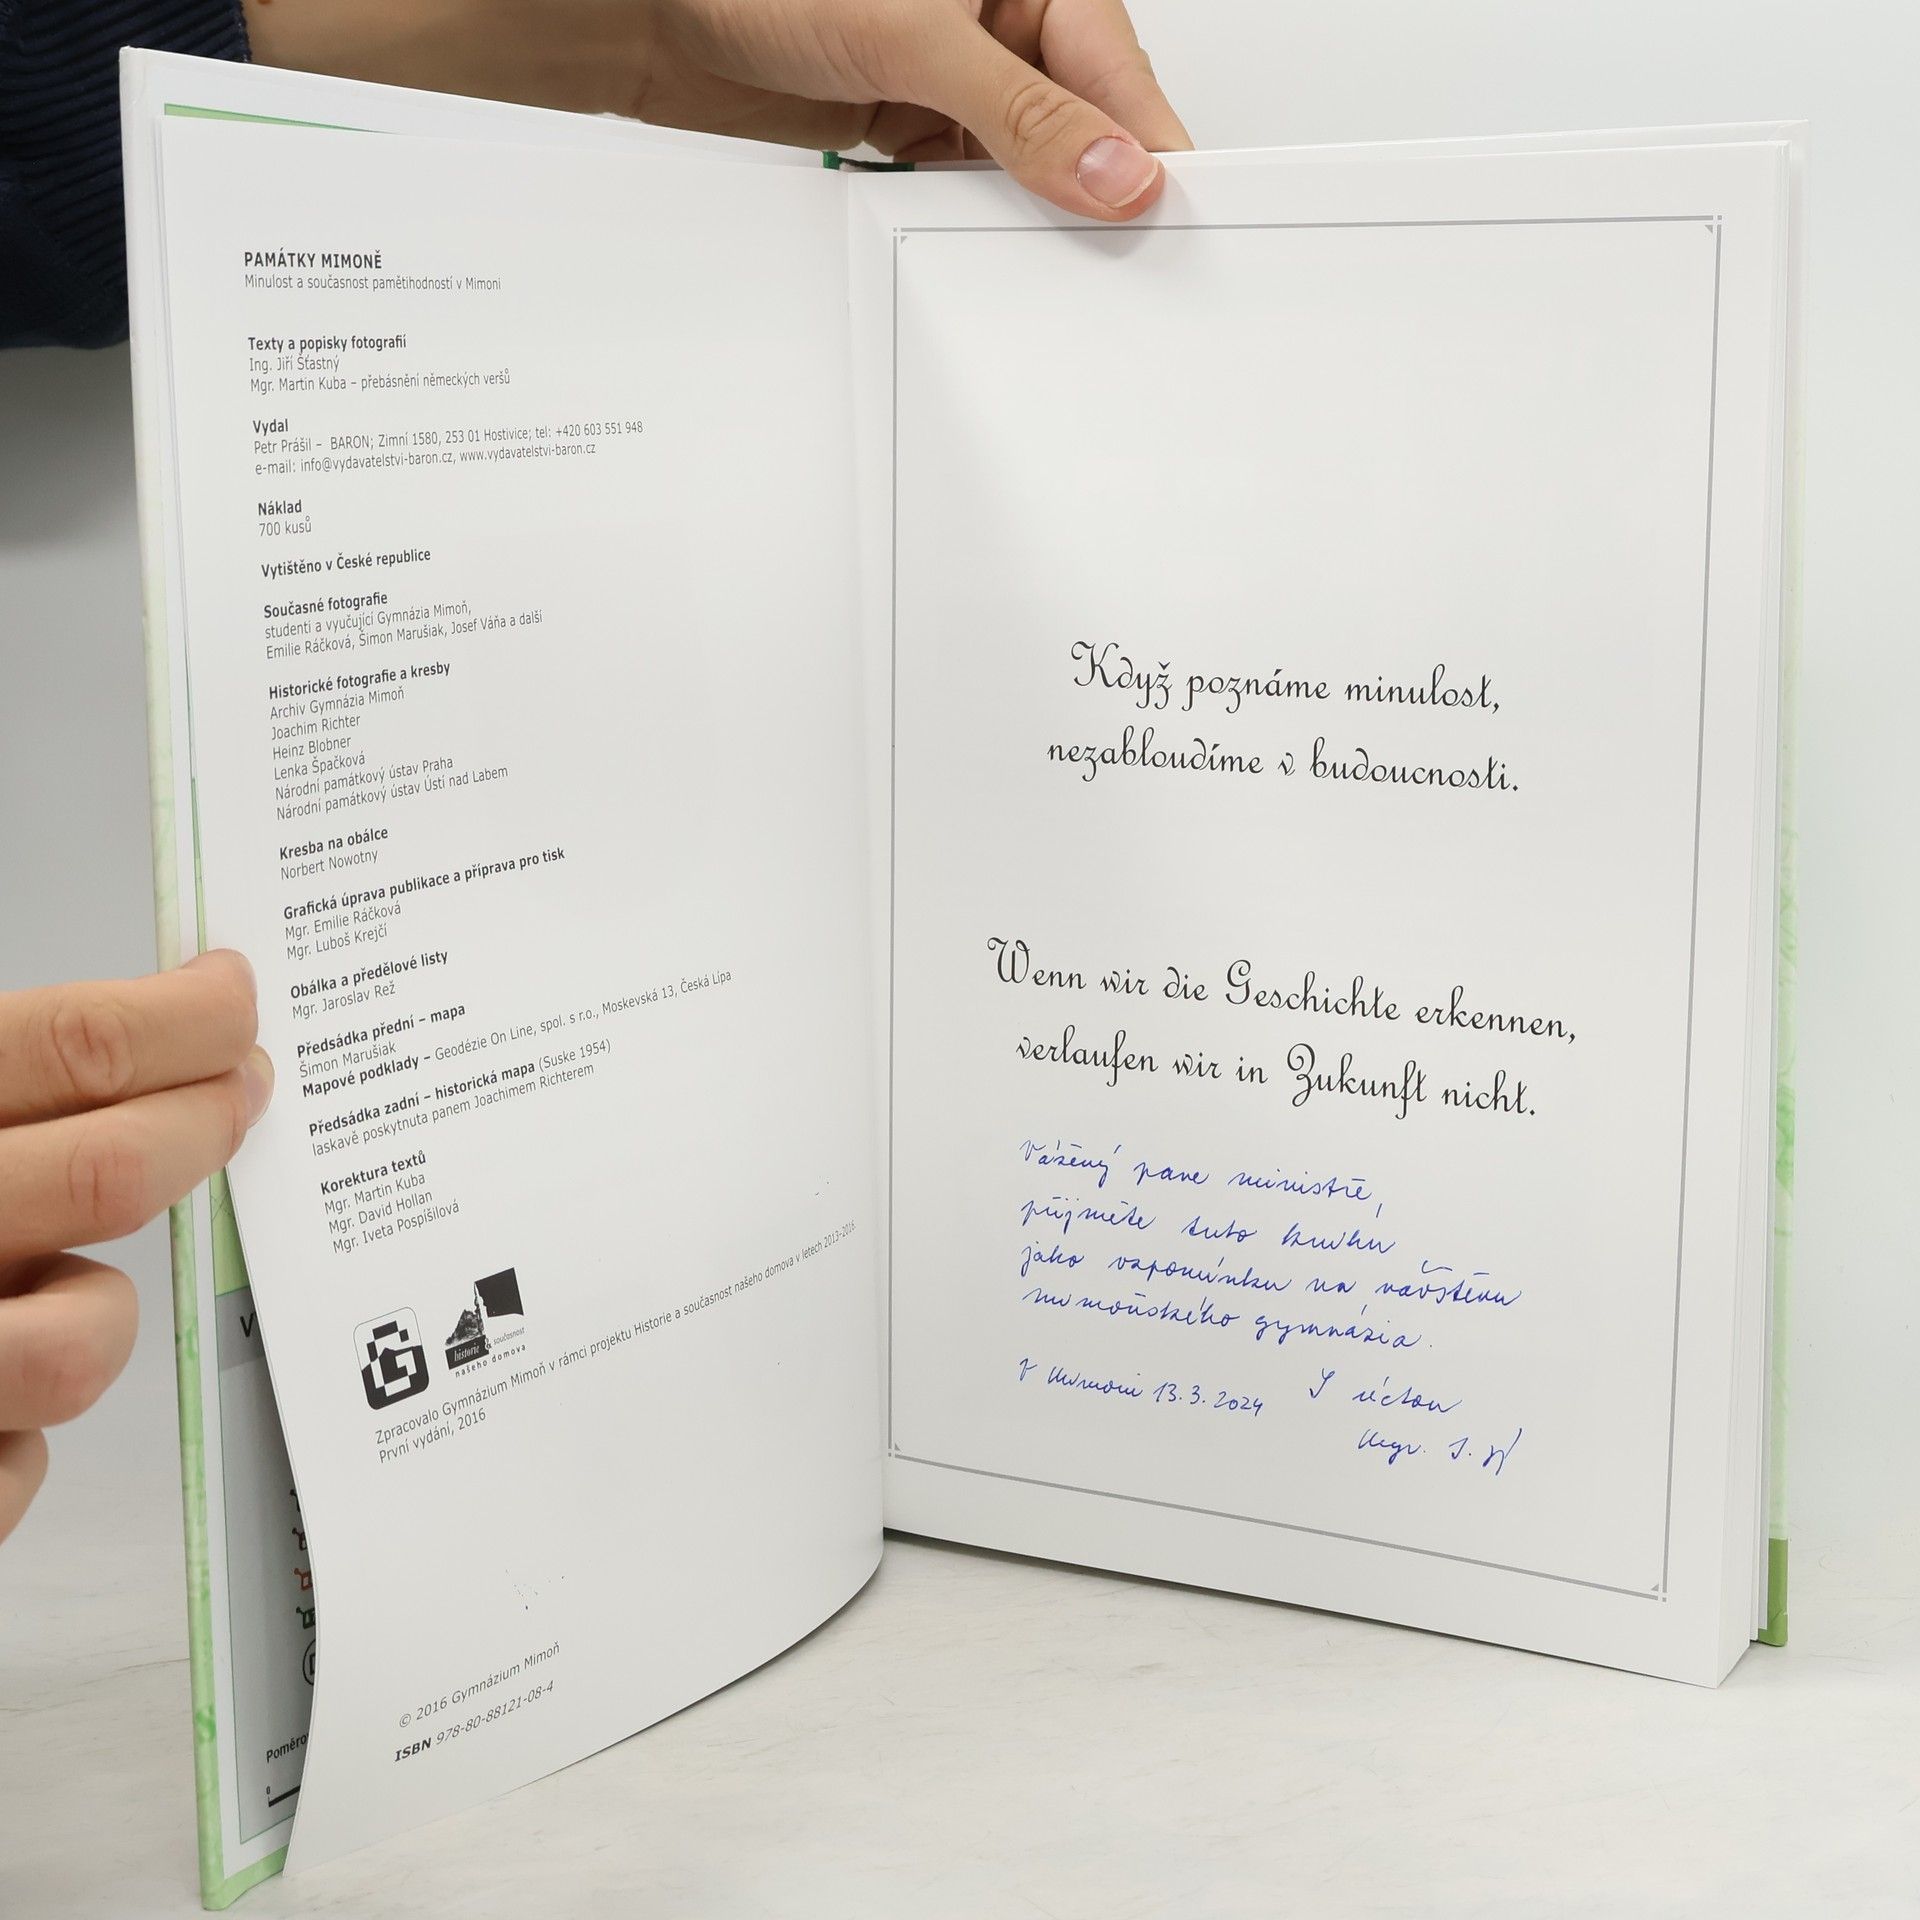 PAMÁTKY MIMONĚ
Minulost a současnost pamětihodností v Mimoni
Texty a popisky fotografií
Ing. Jiří Šťastný
Mgr. Martin Kuba – přebásnění německých veršů
Vydal
Petr Prášil – BARON; Zimní 1580, 253 01 Hostivice; tel: +420 603 551 948
e-mail: info@vydavatelstvi-baron.cz, www.vydavatelstvi-baron.cz
Náklad
700 kusů
Vytištěno v České republice
Současné fotografie
studenti a vyučující Gymnázia Mimoň,
Emilie Ráčková, Šimon Marušiak, Josef Váňa a další
Historické fotografie a kresby
Archiv Gymnázia Mimoň
Joachim Richter
Heinz Blobner
Lenka Špačková
Národní památkový ústav Praha
Národní památkový ústav Ústí nad Labem
Kresba na obálce
Norbert Nowotny
Grafická úprava publikace a příprava pro tisk
Mgr. Emilie Ráčková
Mgr. Luboš Krejčí
Obálka a předělové listy
Mgr. Jaroslav Rež
Předsádka přední – mapa
Šimon Marušiak
Mapové podklady – Geodézie On Line, spol. s r.o., Moskevská 13, Česká Lípa
Předsádka zadní – historická mapa (Suske 1954)
laskavě poskytnuta panem Joachimem Richterem
Korektura textů
Mgr. Martin Kuba
Mgr. David Hollan
Mgr. Iveta Pospíšilová
historie & současnost
našeho domova
Zpracovalo Gymnázium Mimoň v rámci projektu Historie a současnost našeho domova v letech 2013-2016.
První vydání, 2016
© 2016 Gymnázium Mimoň
ISBN 978-80-88121-08-4
Poměro
0
Když poznáme minulost,
nezabloudíme v budoucnosti.
Wenn wir die Geschichte erkennen,
verlaufen wir in Zukunft nicht.
Vážený pane ministře,
přijměte tuto knihu
jako vzpomínku na návštěvu
mimoňského gymnázia.
V Mimoni 13.3.2024 S úctou
Mgr. J.